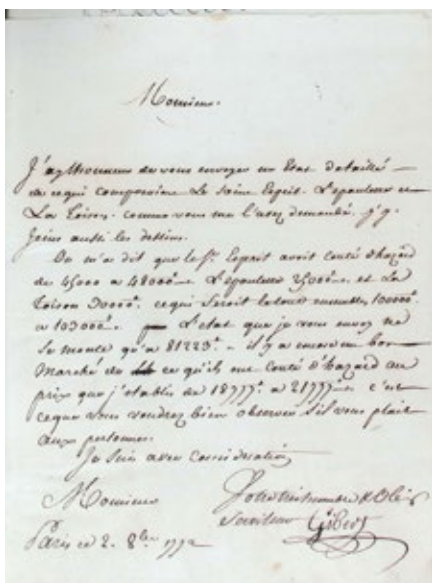 Monsieur.
J'ay l'honneur de vous envoyer un Etat detaillé
de ce qui compose le Saint Esprit. L'epaulette et
La Toison. comme vous me l'avez demandé. j'y
Joins aussi les dessins.
On m'a dit que le St. Esprit avoit couté d'hazard
de 45000 a 48000tt. L'epaulette 25000tt. et La
Toison 30000tt. ce qui feroit le tout ensemble 100000tt
a 103000tt. L'etat que je vous envoy ne
se monte qu'a 81223tt. il y a encore un bon
Marché de ce qu'ils ont couté d'hazard au
prix que j'etablis de 18777tt. a 21777tt. c'est
ce que vous voudrez bien observer s'il vous plait
aux personnes.
Je suis avec consideration
Monsieur
Votre tres humble & Obeis
Serviteur
Paris ce 2. 8bre 1792